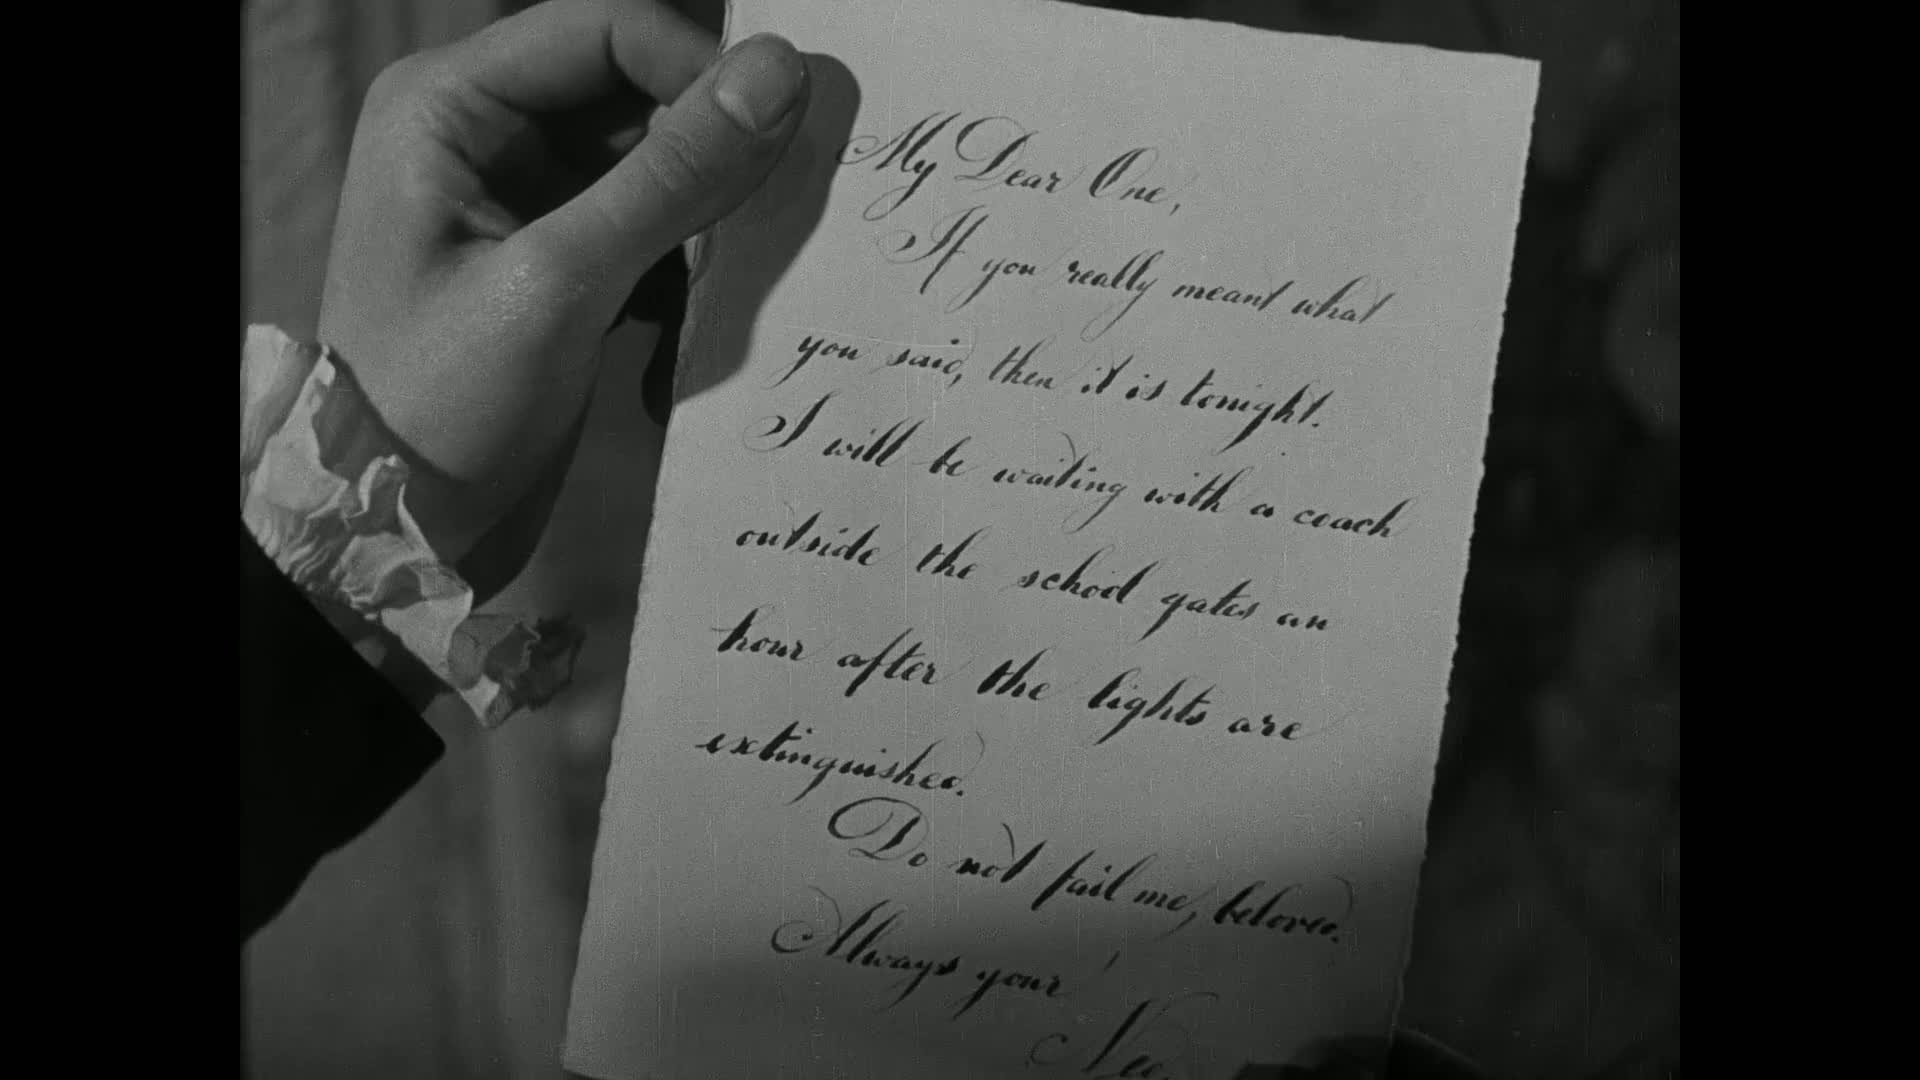 My Dear One,
If you really meant what
you said, then it is tonight.
I will be waiting with a coach
outside the school gates an
hour after the lights are
extinguished.
Do not fail me, beloved.
Always your